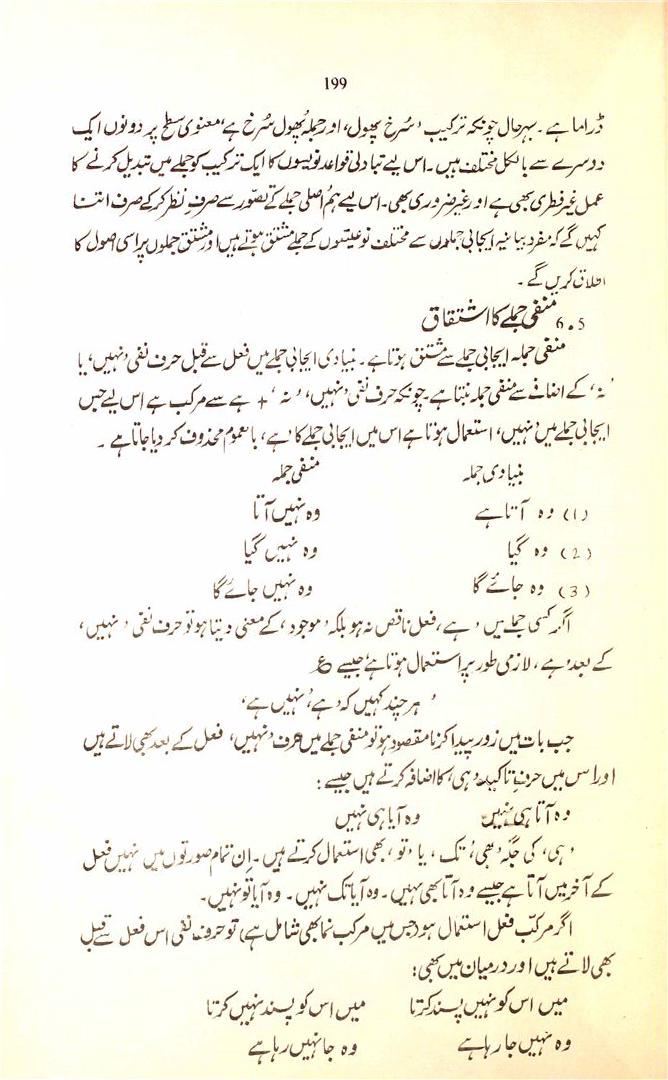 199
ڈراما ہے ۔ بہرحال چونکہ ترکیب 'سُرخ پھول، اور جملہ 'پھول سُرخ ہے، معنوی سطح پر دونوں ایک
دوسرے سے بالکل مختلف ہیں ۔ اس لیے تبادلی قواعد نویسوں کا ایک ترکیب کو جملے میں تبدیل کرنے کا
عمل غیر فطری بھی ہے اور غیر ضروری بھی ۔ اس لیے ہم اصلی جملے کے تصوّر سے صرفِ نظر کر کے صرف اتنا
کہیں گے کہ مفرد بیانیہ ایجابی جملوں سے مختلف نوعیتوں کے جملے مشتق ہوتے ہیں اور مشتق جملوں پر اسی اصول کا
اطلاق کریں گے ۔
6.5 منفی جملے کا اشتقاق
منفی جملہ ایجابی جملے سے مشتق ہوتا ہے ۔ بنیادی ایجابی جملے میں فعل سے قبل حرف نفی 'نہیں، یا
'نہ، کے اضافے سے منفی جملہ بنتا ہے ۔ چونکہ حرف نفی 'نہیں، 'نہ' + ہے سے مرکب ہے اس لیے جس
ایجابی جملے میں 'نہیں، استعمال ہوتا ہے اس میں ایجابی جملے کا 'ہے، بالعموم محذوف کر دیا جاتا ہے ۔
بنیادی جملہ منفی جملہ
(1) وہ آتا ہے وہ نہیں آتا
(2) وہ گیا وہ نہیں گیا
(3) وہ جائے گا وہ نہیں جائے گا
اگر کسی جملے میں 'ہے، فعل ناقص نہ ہو بلکہ 'موجود، کے معنی دیتا ہو تو حرف نفی 'نہیں،
کے بعد 'ہے، لازمی طور پر استعمال ہوتا ہے جیسے ع
'ہر چند کہیں کہ 'ہے، نہیں ہے'
جب بات میں زور پیدا کرنا مقصود ہو تو منفی جملے میں حرف 'نہیں، فعل کے بعد بھی لاتے ہیں
اور اس میں حرفِ تاکید 'ہی، کا اضافہ کرتے ہیں جیسے :
وہ آتا ہی نہیں وہ آیا ہی نہیں
'ہی، کی جگہ 'بھی، 'تک، یا 'تو، بھی استعمال کرتے ہیں ۔ اِن تمام صورتوں میں نہیں فعل
کے آخر میں آتا ہے جیسے وہ آتا بھی نہیں ۔ وہ آیا تک نہیں ۔ وہ آیا تو نہیں ۔
اگر مرکّب فعل استعمال ہو (جس میں مرکب نما بھی شامل ہے) تو حرف نفی اس فعل سے قبل
بھی لاتے ہیں اور درمیان میں بھی :
میں اس کو نہیں پسند کرتا میں اس کو پسند نہیں کرتا
وہ نہیں جا رہا ہے وہ جا نہیں رہا ہے